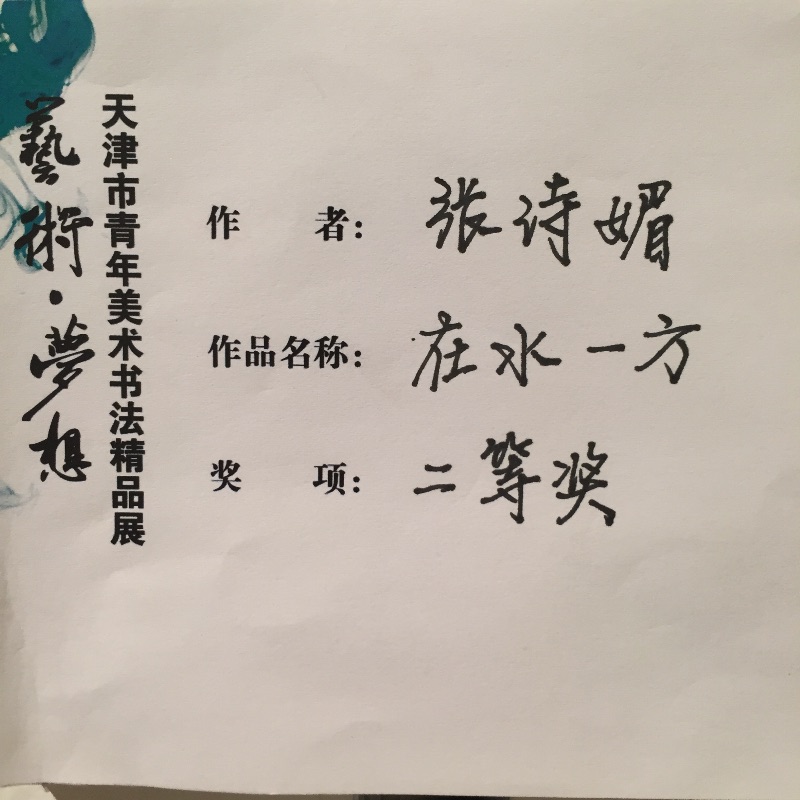 藝術·夢想
天津市青年美术书法精品展
作者：张诗媚
作品名称：在水一方
奖项：二等奖